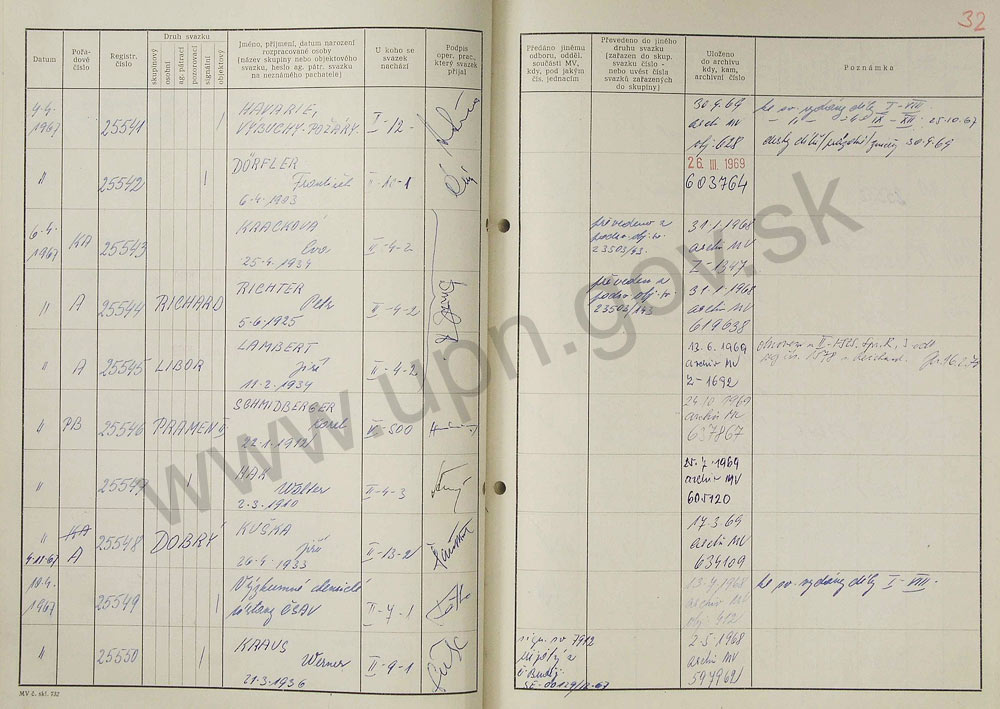 32
Datum
Pořa-
dové
číslo
Registr.
číslo
Druh svazku
skupinový
osobní
ag. pátrací
pozorovací
signální
objektový
Jméno, příjmení, datum narození
rozpracované osoby
(název skupiny nebo objektového
svazku, heslo ag. pátr. svazku
na neznámého pachatele)
U koho se
svazek
nachází
Podpis
oper. prac.,
který svazek
přijal
Předáno jinému
odboru, odděl.
součásti MV,
kdy, pod jakým
čís. jednacím
Převedeno do jiného
druhu svazku
(zařazen do skup.
svazku číslo -
nebo uvést čísla
svazků zařazených
do skupiny)
Uloženo
do archivu
kdy, kam,
archivní číslo
Poznámka
4.4.
1967
25541
HAVARIE,
VÝBUCHY-POŽÁRY.
I-12-
30.9.69
arch MV
obj. 628
ke sv. vydány díly I-VIII
IX-XII: 25.10.67
30.9.69
"
25542
DÖRFLER
František
6.4.1903
II-10-1
26. III. 1969
603764
6.4.
1967
KA
25543
KRACKOVÁ
Eva
25.4.1934
II-4-2
převedeno z
23503/43.
31.1.1968
archiv MV
Z-1347
"
A
25544
RICHARD
RICHTER
Petr
5.6.1925
II-4-2
převeden z
23503/243
31.1.1968
archiv MV
619638
"
A
25545
LIBOR
LAMBERT
Jiří
11.2.1934
II-4-2
12.6.1969
archiv MV
Z-1692
"
PB
25546
PRAMEN
SCHMIDBERGER
Karel
22.1.1912
-500
24.10.1969
archiv MV
637867
"
25547
HAK
Walter
2.3.1910
II-4-3
7.1969
archiv MV
605120
"
KA
4.11.67
A
25548
DOBRÝ
KUŠKA
Jiří
26.4.1933
II-13-2
17.3.69
archiv MV
634109
10.4.
1967
25549
Výzkumné chemické
ústavy ČSAV
II-7-1
13.4.1968
archiv MV
obj. 412
ke sv. vydány díly I-VIII.
"
25550
KRAUS
Werner
21.3.1936
II-9-1
sign. sv 7912
Č. Buděj.
2.5.1968
archiv MV
597962
MV č. skl. 132
www.upn.gov.sk